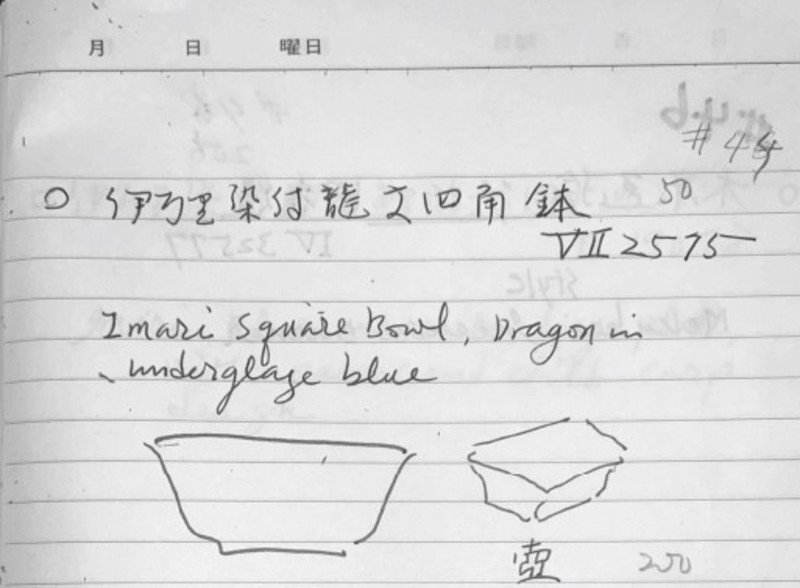 月 日 曜日
○ 伊万里染付龍文四角鉢 50
VII 2575
Imari Square Bowl, Dragon in
underglaze blue
壺 200